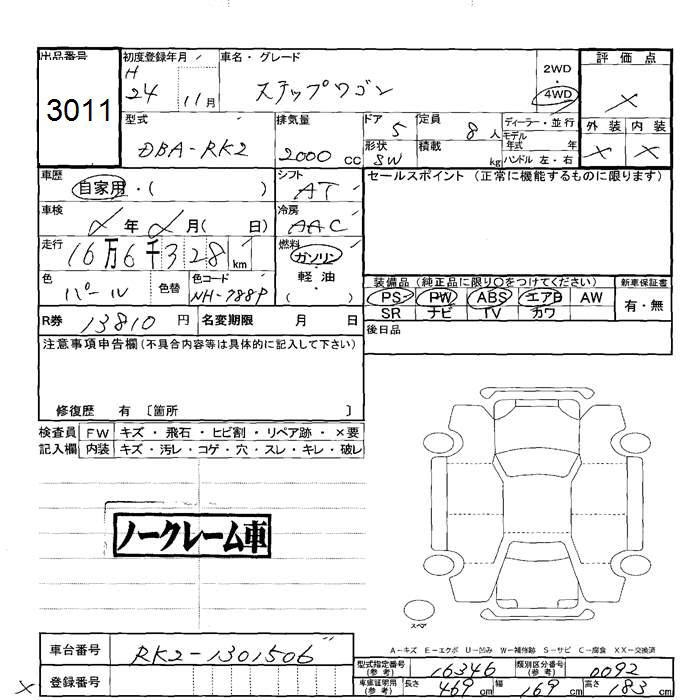 出品番号
3011
初度登録年月
H 24 11月
車名・グレード
ステップワゴン
2WD
4WD
評価点
×
外装 内装
× ×
型式
DBA-RK2
排気量
2000 cc
ドア 5
形状 SW
定員 8 人
積載 kg
ディーラー・並行
モデル年式 年
ハンドル 左・右
車歴
自家用・( )
シフト
AT
セールスポイント(正常に機能するものに限ります)
車検
年 月( 日)
冷房
AAC
走行
16万6千328 km
燃料
ガソリン
・
軽油
( )
色
パール
色替
色コード
NH-788P
装備品(純正品に限り○をつけてください)
PS PW ABS エアB AW
SR ナビ TV カワ
新車保証書
有・無
R券 13810 円
名変期限 月 日
後日品
注意事項申告欄(不具合内容等は具体的に記入して下さい)
修復歴 有 〔箇所 〕
検査員 FW キズ・飛石・ヒビ割・リペア跡・×要
記入欄 内装 キズ・汚レ・コゲ・穴・スレ・キレ・破レ
ノークレーム車
スペア
A-キズ E-エクボ U-凹み W-補修跡 S-サビ C-腐食 XX-交換済
車台番号
RK2-1301506
登録番号
型式指定番号(参考) 16346
類別区分番号(参考) 0092
車庫証明用(参考) 長さ 469 cm 幅 169 cm 高さ 183 cm
×